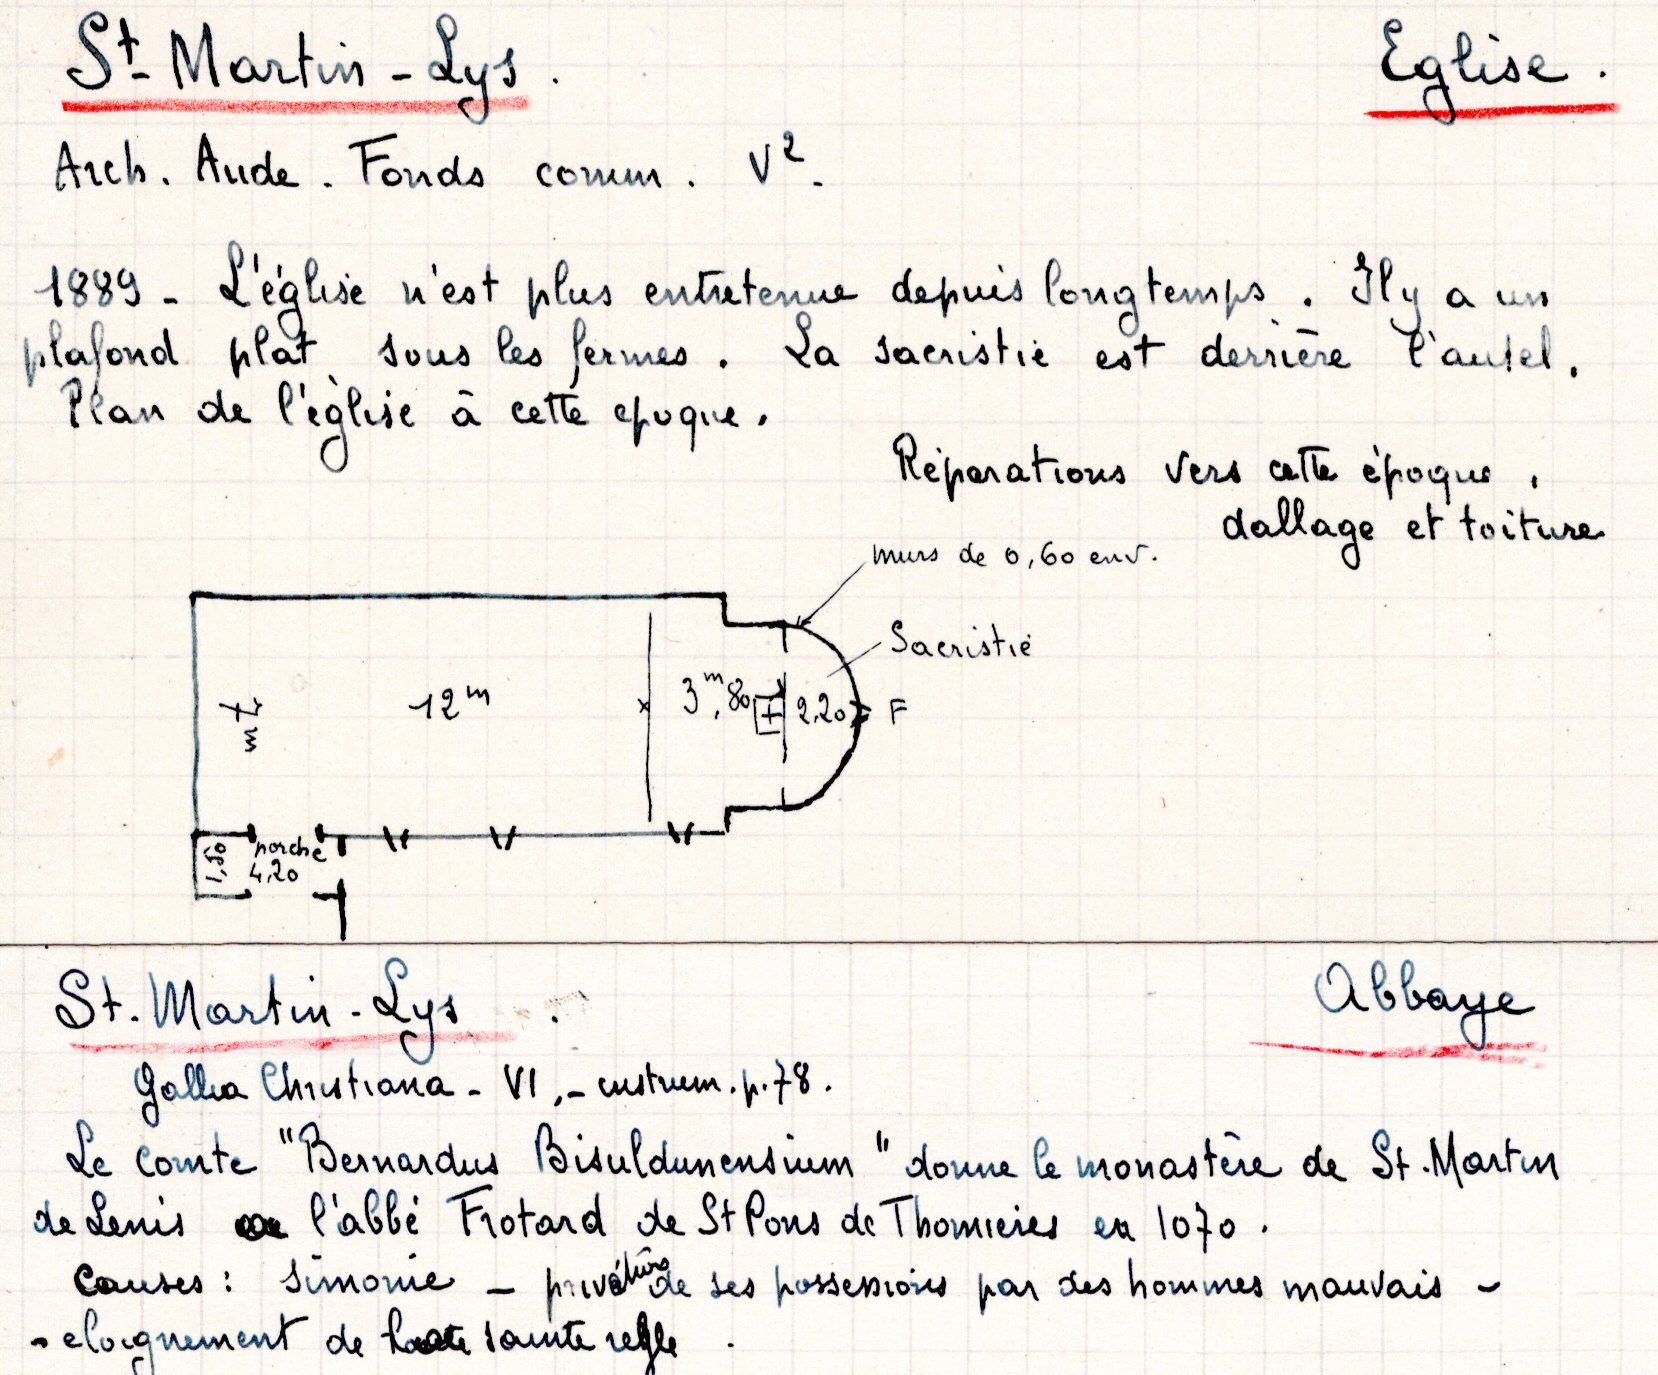 St-Martin-Lys.
Eglise.
Arch. Aude. Fonds comm. V².
1889 - L'église n'est plus entretenue depuis longtemps. Il y a un
plafond plat sous les fermes. La sacristie est derrière l'autel.
Plan de l'église à cette epoque.
Réparations vers cette époque,
dallage et toiture
murs de 0,60 env.
Sacristie
12m
3m,80
2,20
F
porche
4,20
St. Martin-Lys.
Abbaye
Gallia Christiana - VI, - instrum. p. 78.
Le comte "Bernardus Bisuldunensium" donne le monastère de St. Martin
de Lenis à l'abbé Frotard de St Pons de Thomieres en 1070.
Causes : simonie - de ses possessions par des hommes mauvais -
- eloignement de toute sainte regle.